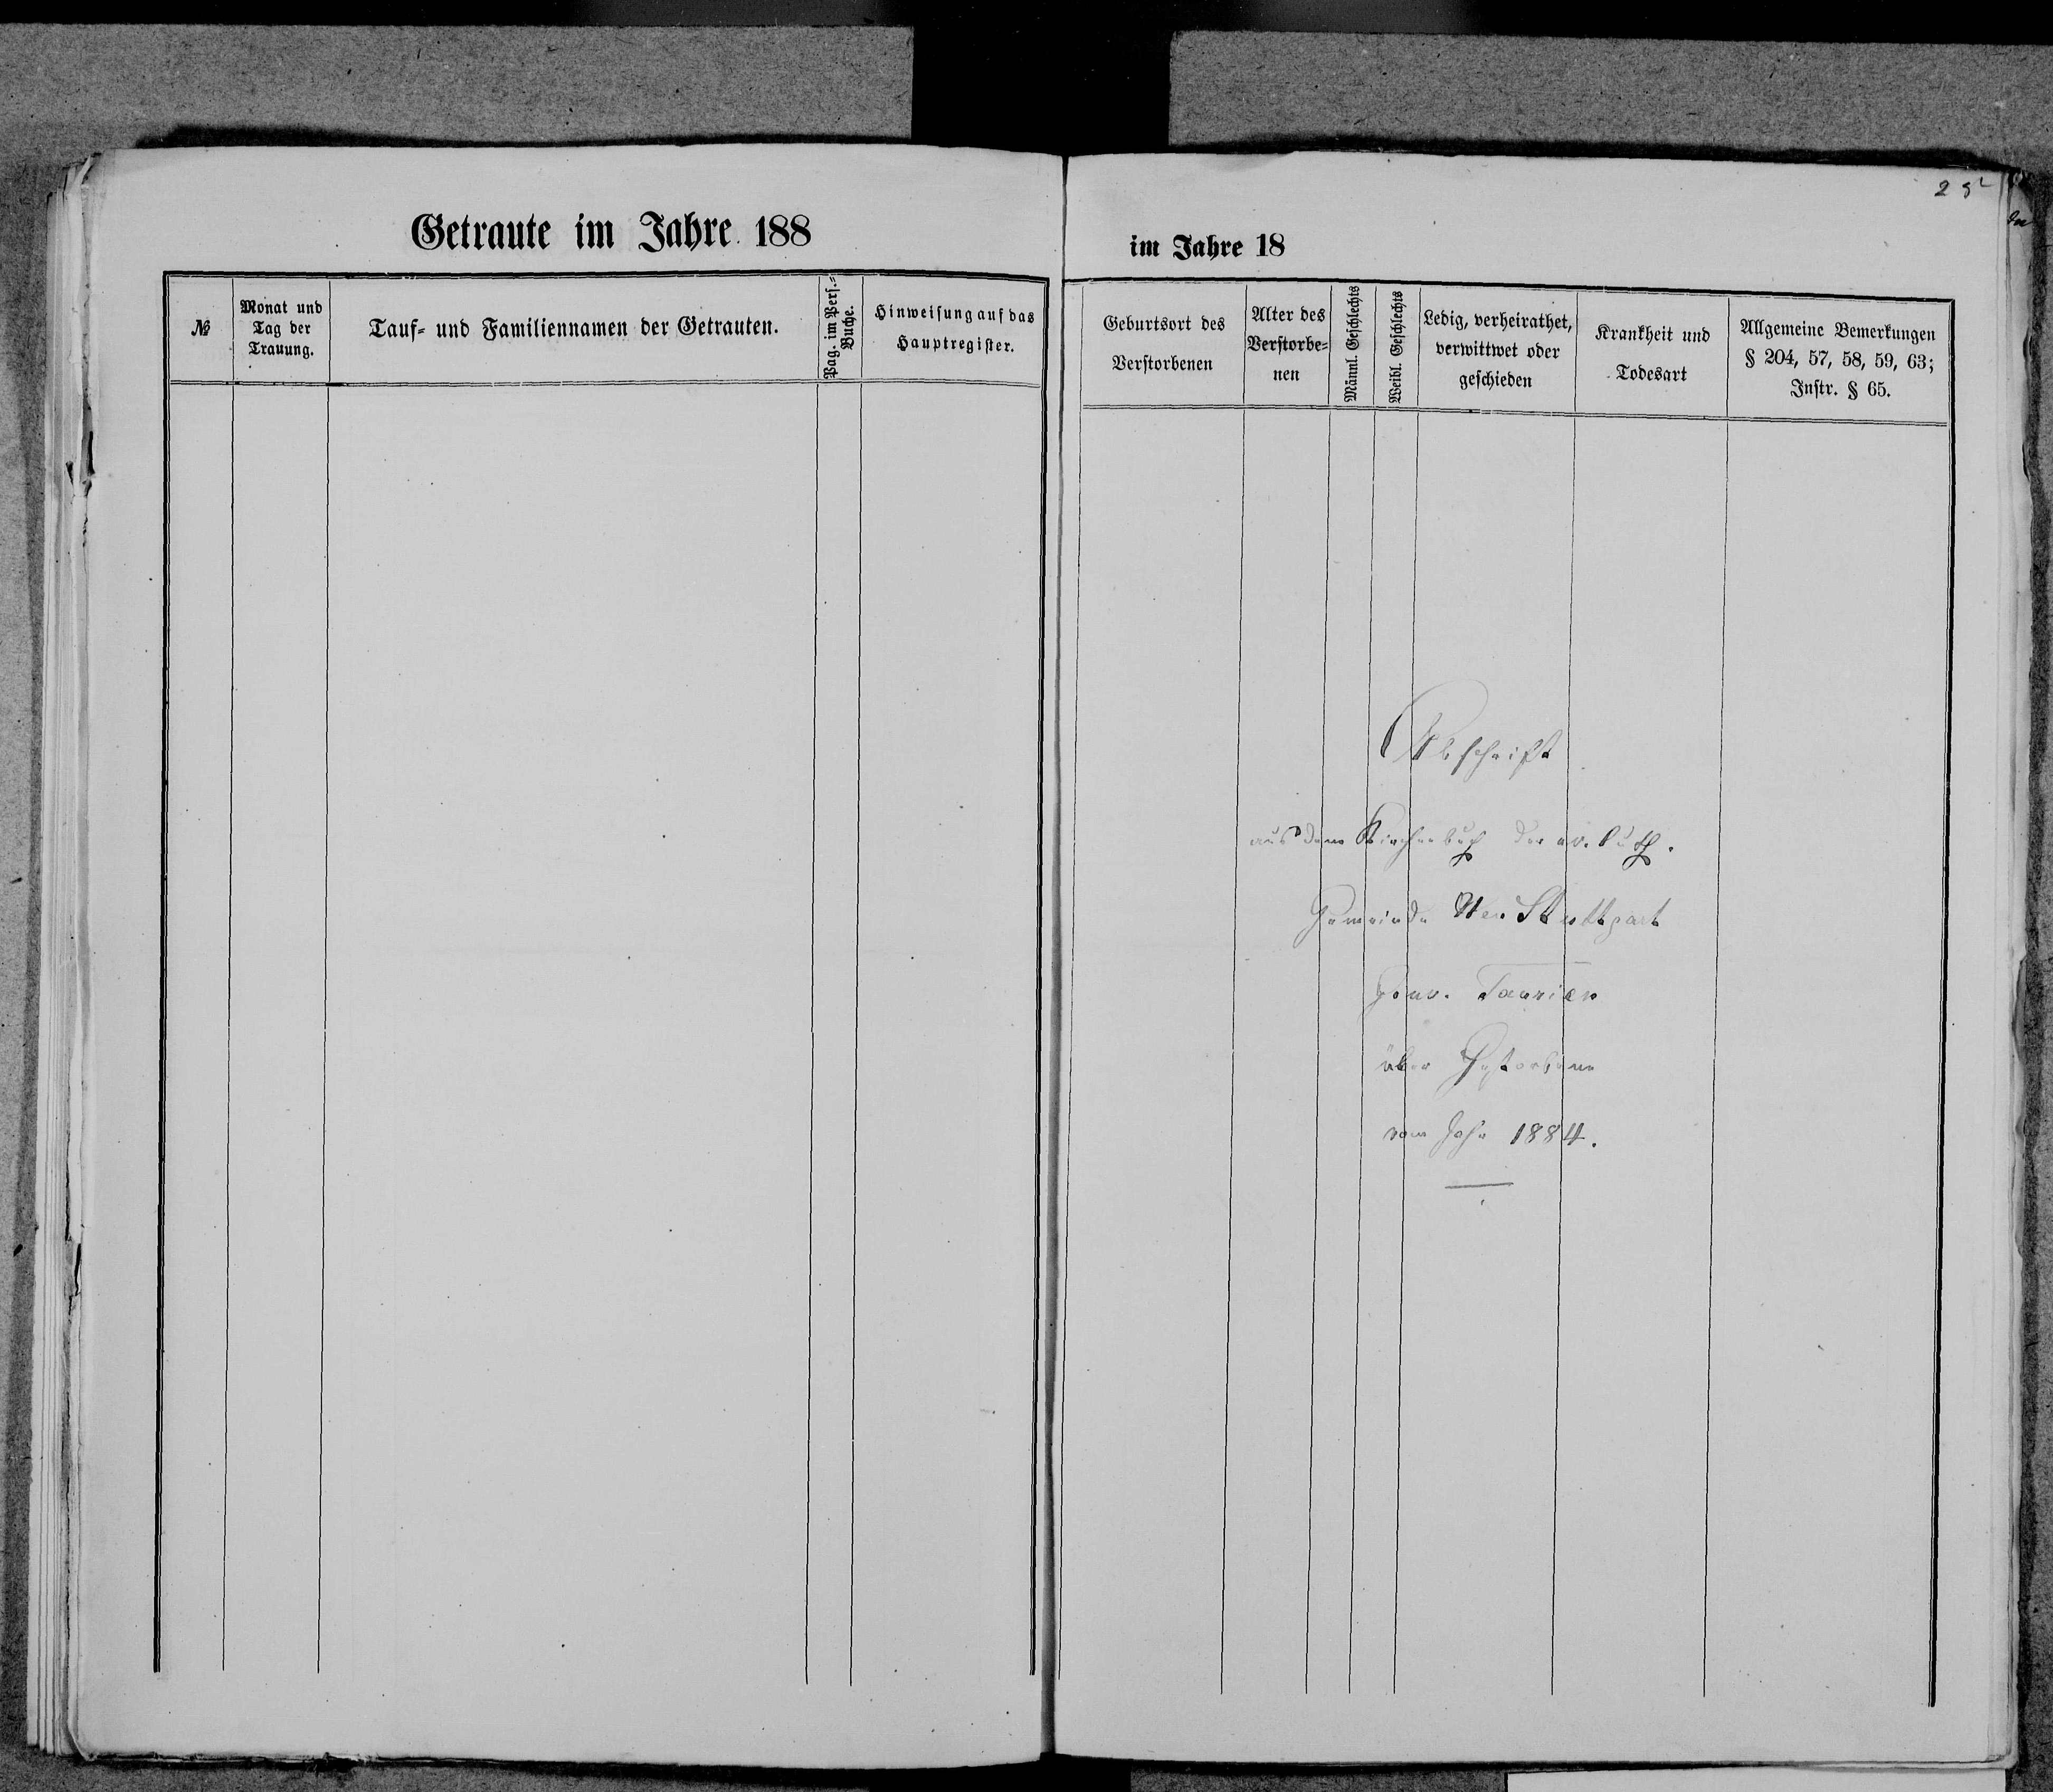 Getraute im Jahre 188
№
Monat und
Tag der
Trauung.
Tauf- und Familiennamen der Getrauten.
Pag. im Pers.-
Buche.
Hinweisung auf das
Hauptregister.
im Jahre 18
Geburtsort des
Verstorbenen
Alter des
Verstorbe-
nen
Männl. Geschlechts
Weibl. Geschlechts
Ledig, verheirathet,
verwittwet oder
geschieden
Krankheit und
Todesart
Allgemeine Bemerkungen
§ 204, 57, 58, 59, 63;
Instr. § 65.
Abschrift
aus dem Kirchenbuch der ev. luth.
Gemeinde Neu Stuttgart
Gouv. Taurien
über Gestorbene
vom Jahr 1884.